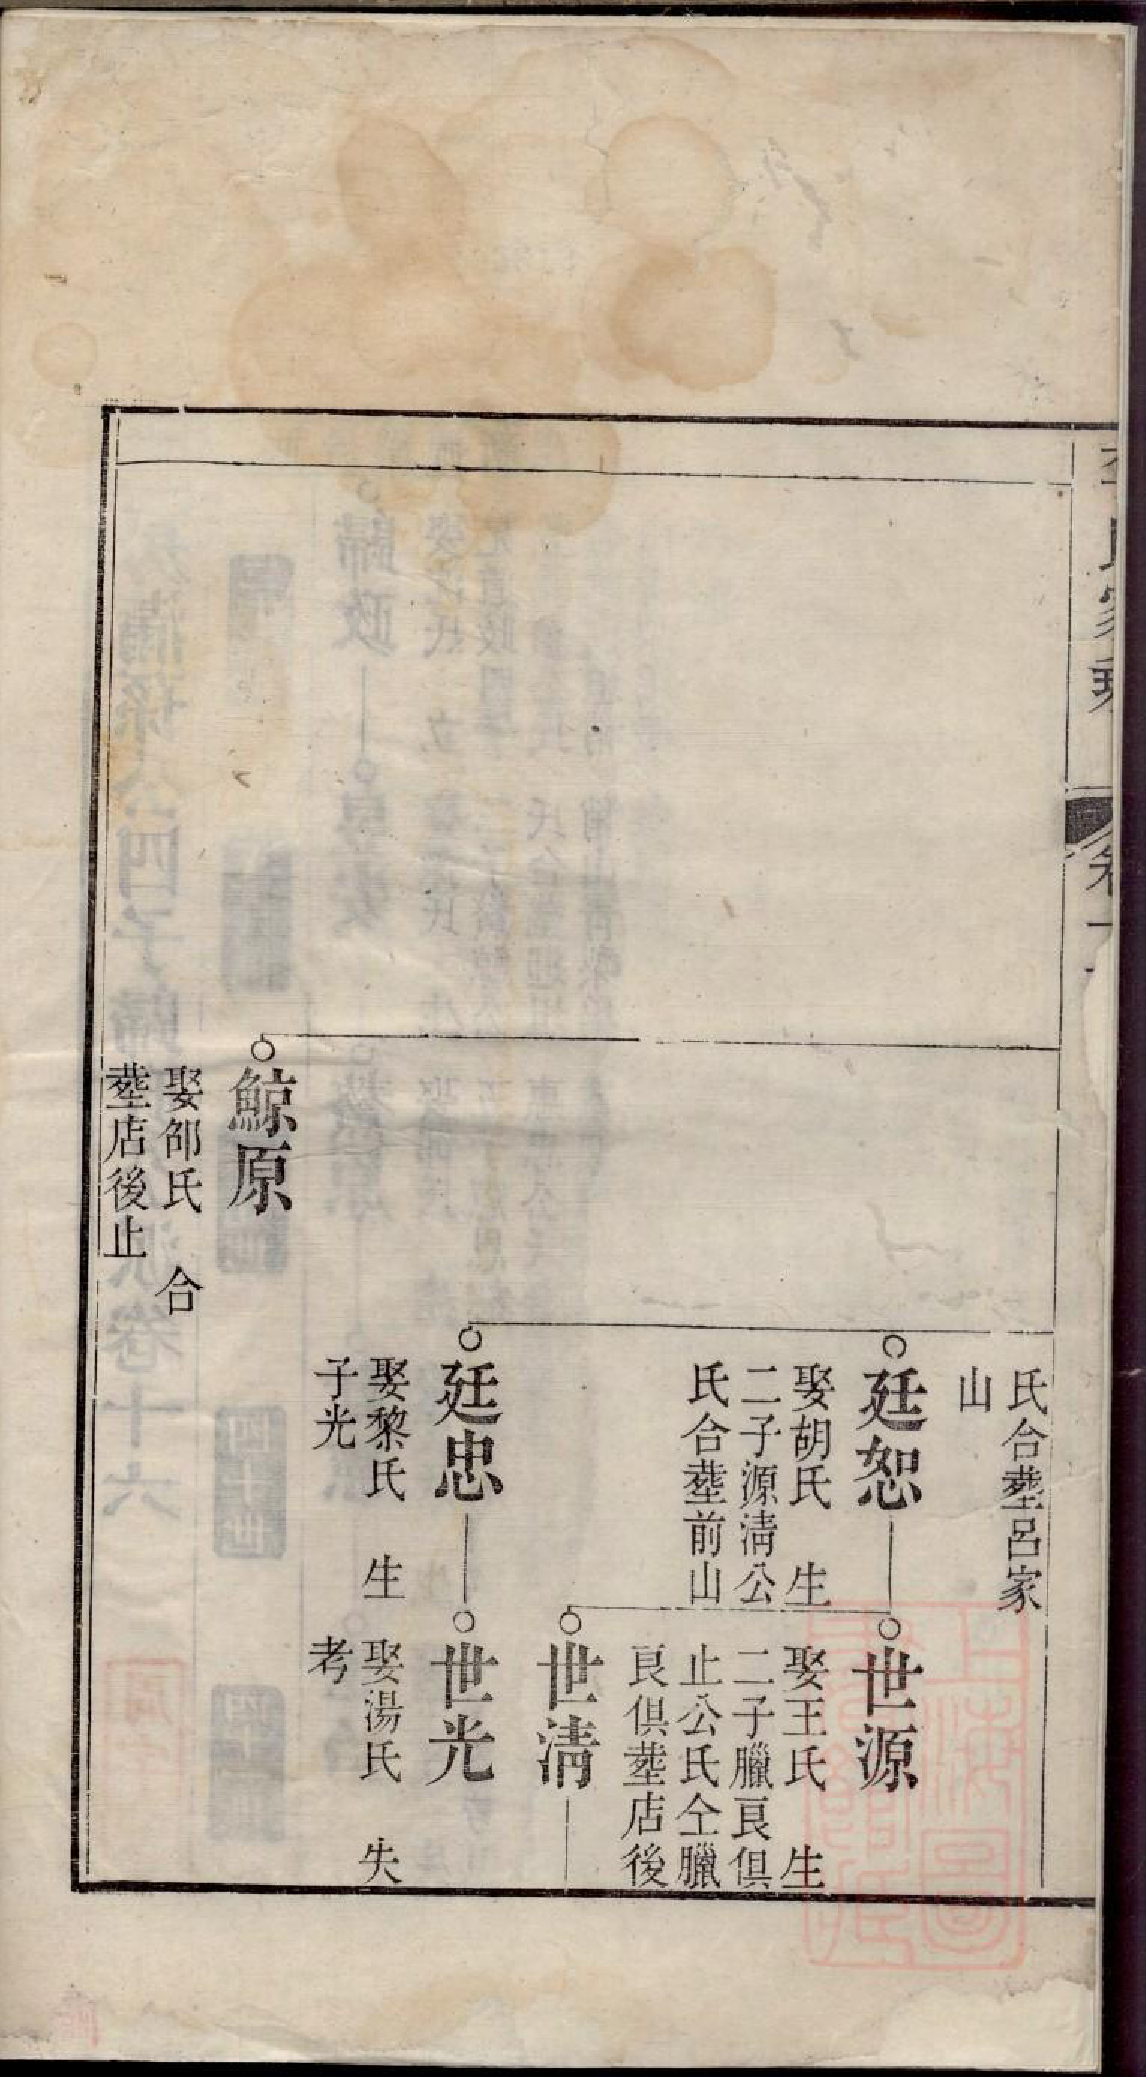 氏合塟呂家
山
廷恕
娶胡氏　生
二子源淸公
氏合塟前山
世源
娶王氏　生
二子臘良俱
止公氏仝臘
良俱塟店後
世淸
廷忠
娶黎氏　生
子光
世光
娶湯氏　失
考
鯨原
娶邹氏　合
塟店後止